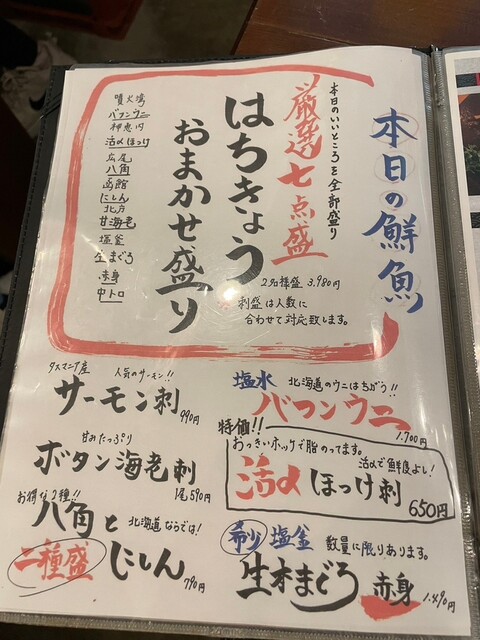 本日の鮮魚
本日のいいところを全部盛り
厳選七点盛
はちきょう
おまかせ盛り
2名様盛 3,980円
刺盛は人数に
合わせて対応致します。
噴火湾
バフンウニ
神恵内
活〆ほっけ
広尾
八角
函館
にしん
北方
甘海老
塩釜
生まぐろ
赤身
中トロ
タスマニア産
人気のサーモン!!
サーモン刺
990円
甘みたっぷり
ボタン海老刺
1尾590円
お得な2種!!
八角と
北海道ならでは!
二種盛
にしん
790円
塩水
北海道のウニはちがう!!
バフンウニ
1,700円
特価!!
おっきいホッケで脂のってます。
活〆で鮮度よし!
活〆ほっけ刺
650円
希少
塩釜
数量に限りあります。
生本まぐろ
赤身
1,490円